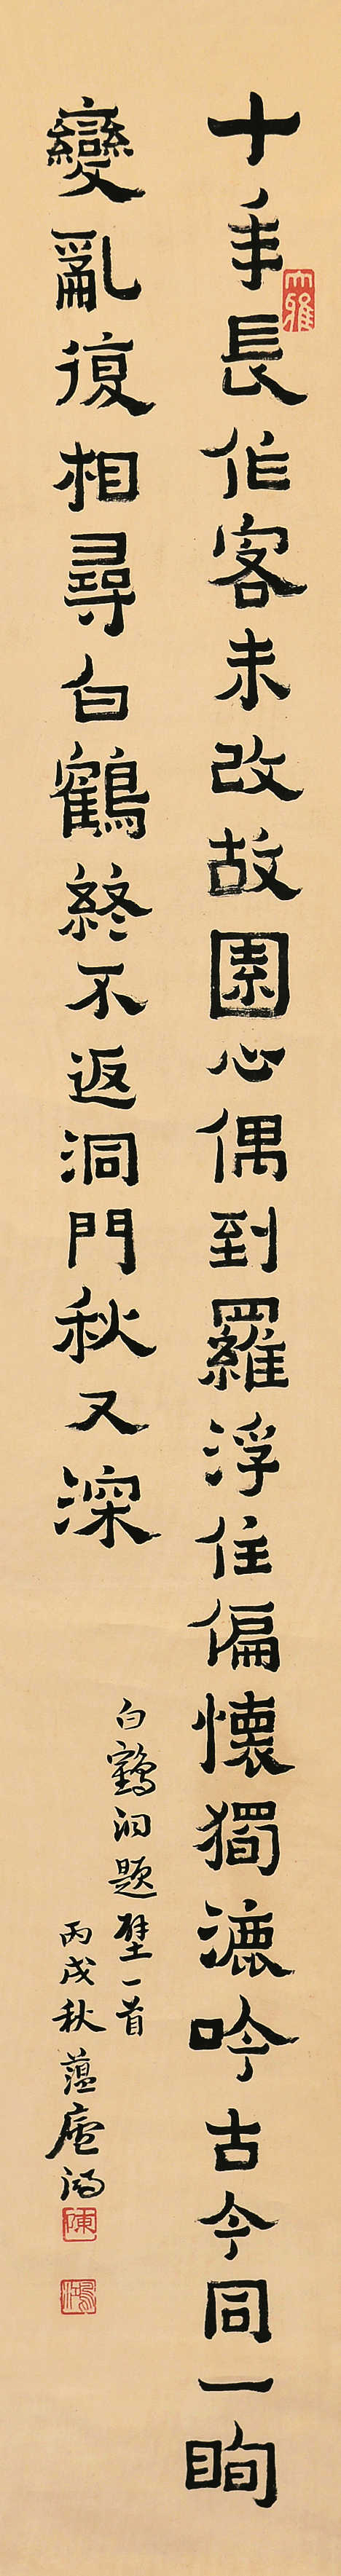 十年長作客未改故園心偶到羅浮住偏懷獨漉吟古今同一眴
變亂復相尋白鶴終不返洞門秋又深
白鶴洞題壁一首
丙戌秋蕰庵
大雅
陳